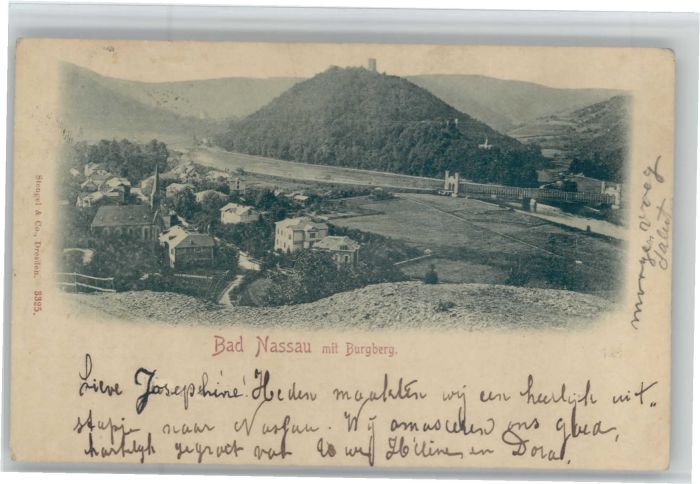 Stengel & Co., Dresden. 3325.
Bad Nassau mit Burgberg.
Lieve Josephine! Heden maakten wij een heerlijk uit-
stapje naar Nassau. Wij amuseeren ons goed,
hartelijk gegroet van Hélène en Dora.
morgen vroeg
Salut